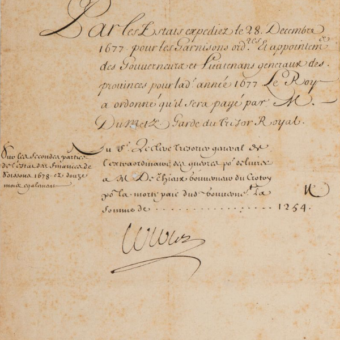 Par les Estats expediez le 28. Decembre
1677 pour les Garnisons ord.res Et appointem.
des Gouverneurs et Lieutenans generaux des
provinces pour lad. année 1677 Le Roy
a ordonné qu'il sera payé par M.
Du Metz Garde du tresor Royal.
Sur les secondes parties
de finances de
Soissons 1678. 12.
mois egalemen
Au S.r tresorier general de
l'extraordinaire des guerres p.r delivrer
a M. De Gouverneur du Crotoy
p.r la morte paie dud. la
somme de 1254.